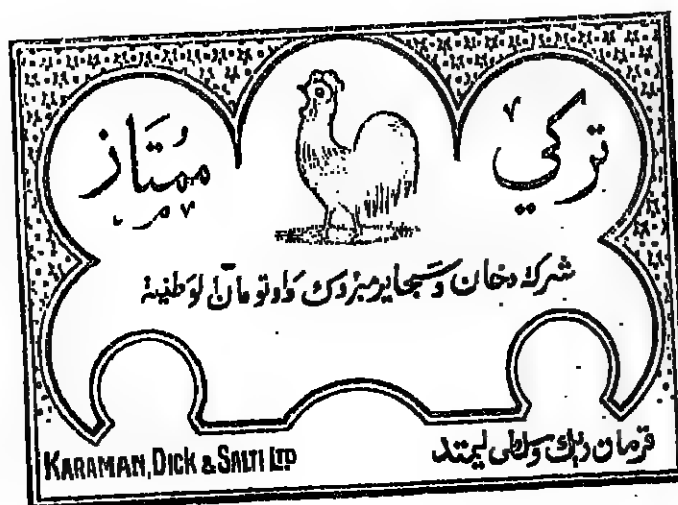 تركي ممتاز
شركة دخان وسجاير مبروك واوتومان الوطنية
قرمان ديك وسلطي ليمتد
KARAMAN, DICK & SALTI LTD